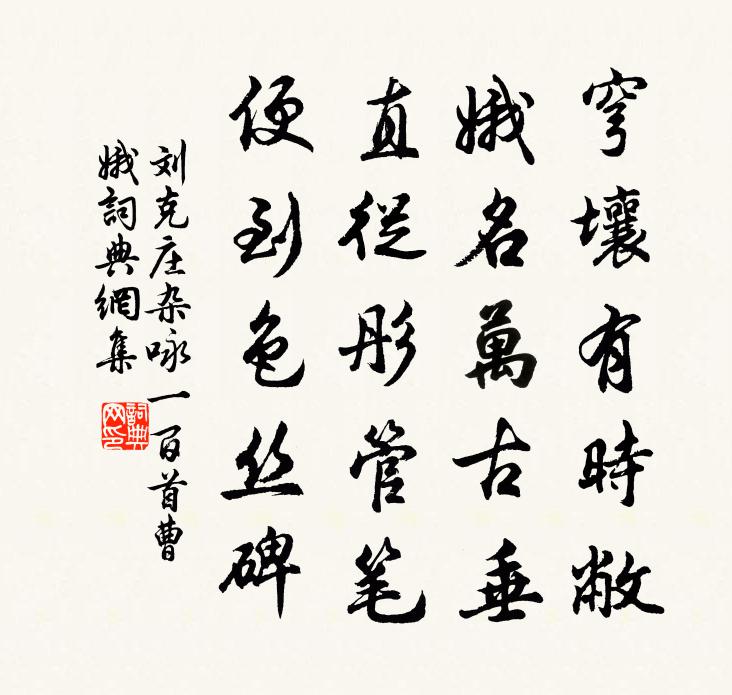 穹壤有時敝
娥名萬古垂
直從彤管笔
便到色丝碑
刘克庄杂咏一百首曹
娥詞典網集
詞典网印